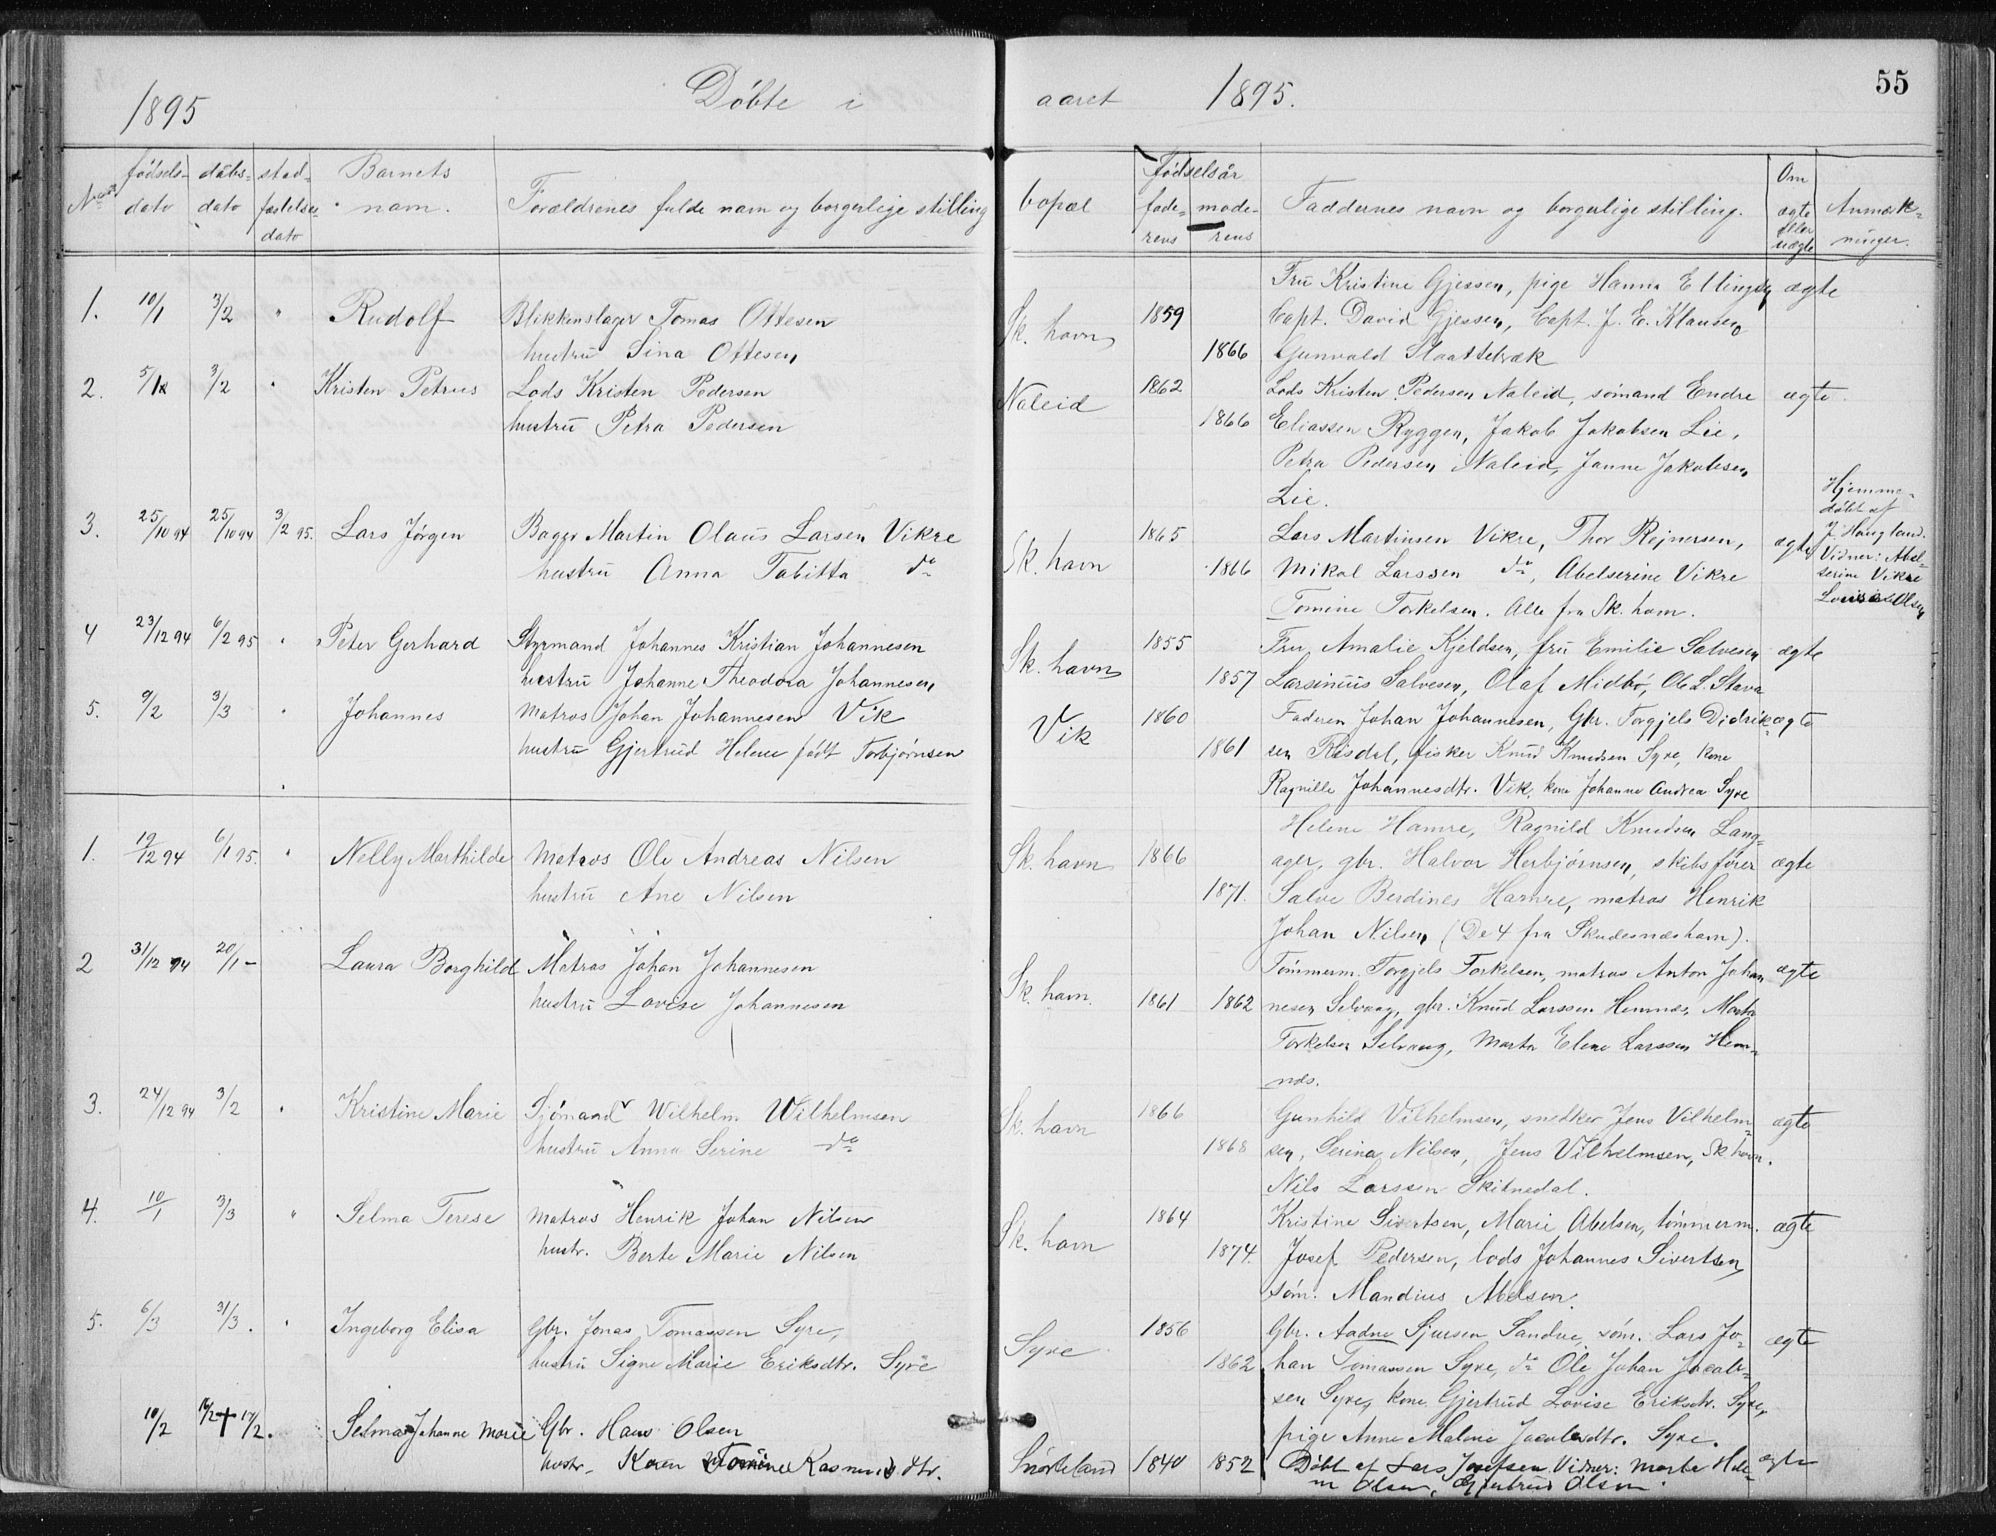 1895 Døbte i aaret 1895. 55
No fødsels- dato daabs- dato stad- fæstelses dato Barnets navn. Forældrenes fulde navn og borgerlige stilling bopæl Fødselsår fade- rens mode- rens Faddernes navn og borgerlige stilling. Om ægte eller uægte Anmærk- ninger.
Fru Kristine Gjessen, pige Hanna Ellingsen ægte
1. 10/1 3/2 " Rudolf Blikkenslager Tomas Ottesen Sk. havn 1859 Capt. David Gjessen, Capt. J. E. Klausen
hustru Sina Ottesen 1866 Gunvald Slaattebræk
2. 5/1 3/2 " Kristen Petrus Lods Kristen Pedersen Naleid 1862 Lods Kristen Pedersen Naleid, sømand Endre ægte.
hustru Petra Pedersen 1866 Eliassen Ryggen, Jakob Jakobsen Lie,
Petra Pedersen Naleid, Janne Jakobsen
Lie.
3. 25/10 94 25/10 94 3/2 95. Lars Jørgen Bager Martin Olaus Larsen Vikre Sk. havn 1865 Lars Martinsen Vikre, Thor Rejnersen, ægte
hustru Anna Tabitta do 1866 Mikal Larssen do, Abelserine Vikre
Tomine Torkelsen. Alle fra Sk. havn.
Hjemme-
døbt af
J. Haugland.
Vidner: Abel-
serine Vikre
Louise Olsen
4 23/12 94 6/2 95 " Peter Gerhard Styrmand Johannes Kristian Johannesen Sk. havn 1855 Fru Amalie Kjeldsen, fru Emilie Salvesen ægte
hustru Johanne Theodora Johannesen, 1857 Larsinius Salvesen, Olaf Midbø, Ole L. Stava
5. 9/2 3/3 " Johannes Matros Johan Johannesen Vik Vik 1860 Faderen Johan Johannesen, Gbr. Torgjels Didrik- ægte
hustru Gjertrud Helene født Torbjørnsen 1861 sen Risdal, fisker Knud Knudsen Syre, kone
Ragnille Johannesdtr. Vik, kone Johanne Andrea Syre
Helene Hamre, Ragnild Knudsen Lang-
1. 19/12 94 6/1 95. " Nelly Marthilde Matros Ole Andreas Nilsen Sk. havn 1866 ager, gbr. Halvor Herbjørnsen, skibsfører ægte
hustru Ane Nilsen 1871. Salve Berdines Hamre, matros Henrik
Johan Nilsen (De 4 fra Skudesnæshavn).
2 31/12 94 20/1 - Laura Borghild Matros Johan Johannesen Sk. havn. Tømmerm. Torgjels Torkelsen, matros Anton Johan ægte
hustru Lovise Johannesen 1861 1862 nesen Selvaag, gbr. Knud Larssen Hemnæs, Marta
Torkelsen Selvaag, Marta Elene Larssen Hem-
næs.
3. 24/12 94 3/2 " Kristine Marie Sjømand Wilhelm Wilhelmsen Sk. havn 1866 Gunhild Vilhelmsen, snedker Jens Vilhelm- ægte
hustru Anna Serine do 1868 sen, Serina Nilsen, Jens Vilhelmsen, Sk. havn.
Nils Larssen Skitnedal.
4. 10/1 3/3 " Selma Terese Matros Henrik Johan Nilsen Sk. havn 1864 Kristine Sivertsen, Marie Abelsen, tømmerm. ægte
hustr. Berte Marie Nilsen 1874. Josef Pedersen, lods Johannes Sivertsen
søm. Mandius Abelsen.
5. 6/3 31/3. " Ingeborg Elisa Gbr. Jonas Tomassen Syre, Syre 1856 Gbr. Aadne Sjursen Sandve, søm. Lars Jo- ægte
hustru Signe Marie Eriksdtr. Syre 1862 han Tomassen Syre, do Ole Johan Jacob-
sen Syre, kone Gjertrud Lovise Eriksdtr. Syre,
pige Anne Malene Jacobsdtr. Syre.
10/2 16/2 + 17/2. Selma Johanne Marie Gbr. Hans Olsen
hustr. Karen Tomine Rasmusdtr. Snørteland 1840 1852 Døbt af Lars Josefsen. Vidner: Marta Hele- ægte
ne Olsen, Gjertrud Olsen.